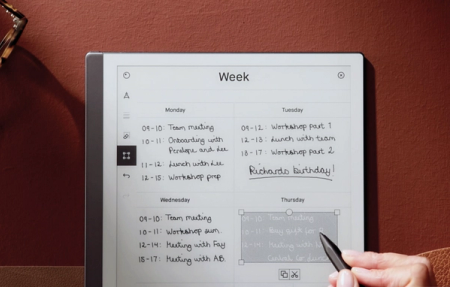 Week
Monday
09-10: Team meeting
10-11: Onboarding with
Penelope and Lee
11-12: Lunch with Lee
12-15: Workshop prep
Tuesday
09-12: Workshop part 1
12-13: Lunch with team
13-17: Workshop part 2
Richards birthday!
Wednesday
09-10: Team meeting
10-11: Workshop sum.
12-14: Meeting with Fay
15-17: Meeting with AB.
Thursday
09-10: Team meeting
10-11:
12-14: Meeting with